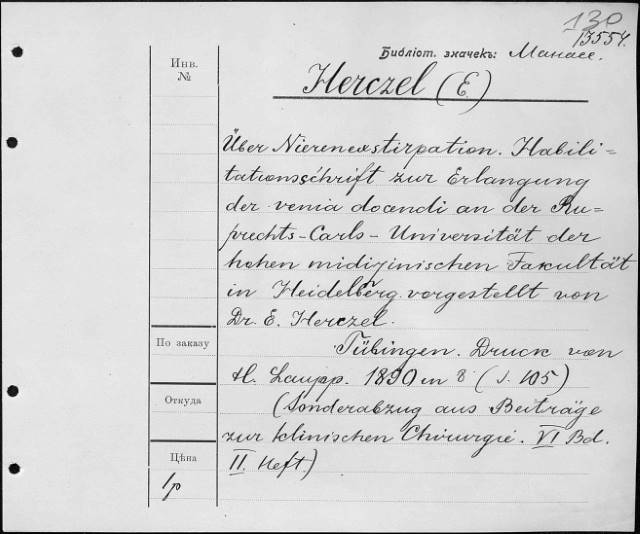 130
13554.
Библіот. значекъ: Манасе.
Инв.
№
Herczel (E)
Über Nierenexstirpation. Habili=
tationsschrift zur Erlangung
der venia docendi an der Ru=
prechts-Carls-Universität der
hohen midizinischen Fakultät
in Heidelberg vorgestellt von
Dr. E. Herczel.
По заказу
Tübingen. Druck von
H. Laupp. 1890 in 8 (S. 105)
Откуда
(Sonderabzug aus Beiträge
zur klinischen Chirurgie. VI Bd.
Цѣна
II. Heft.)
1р